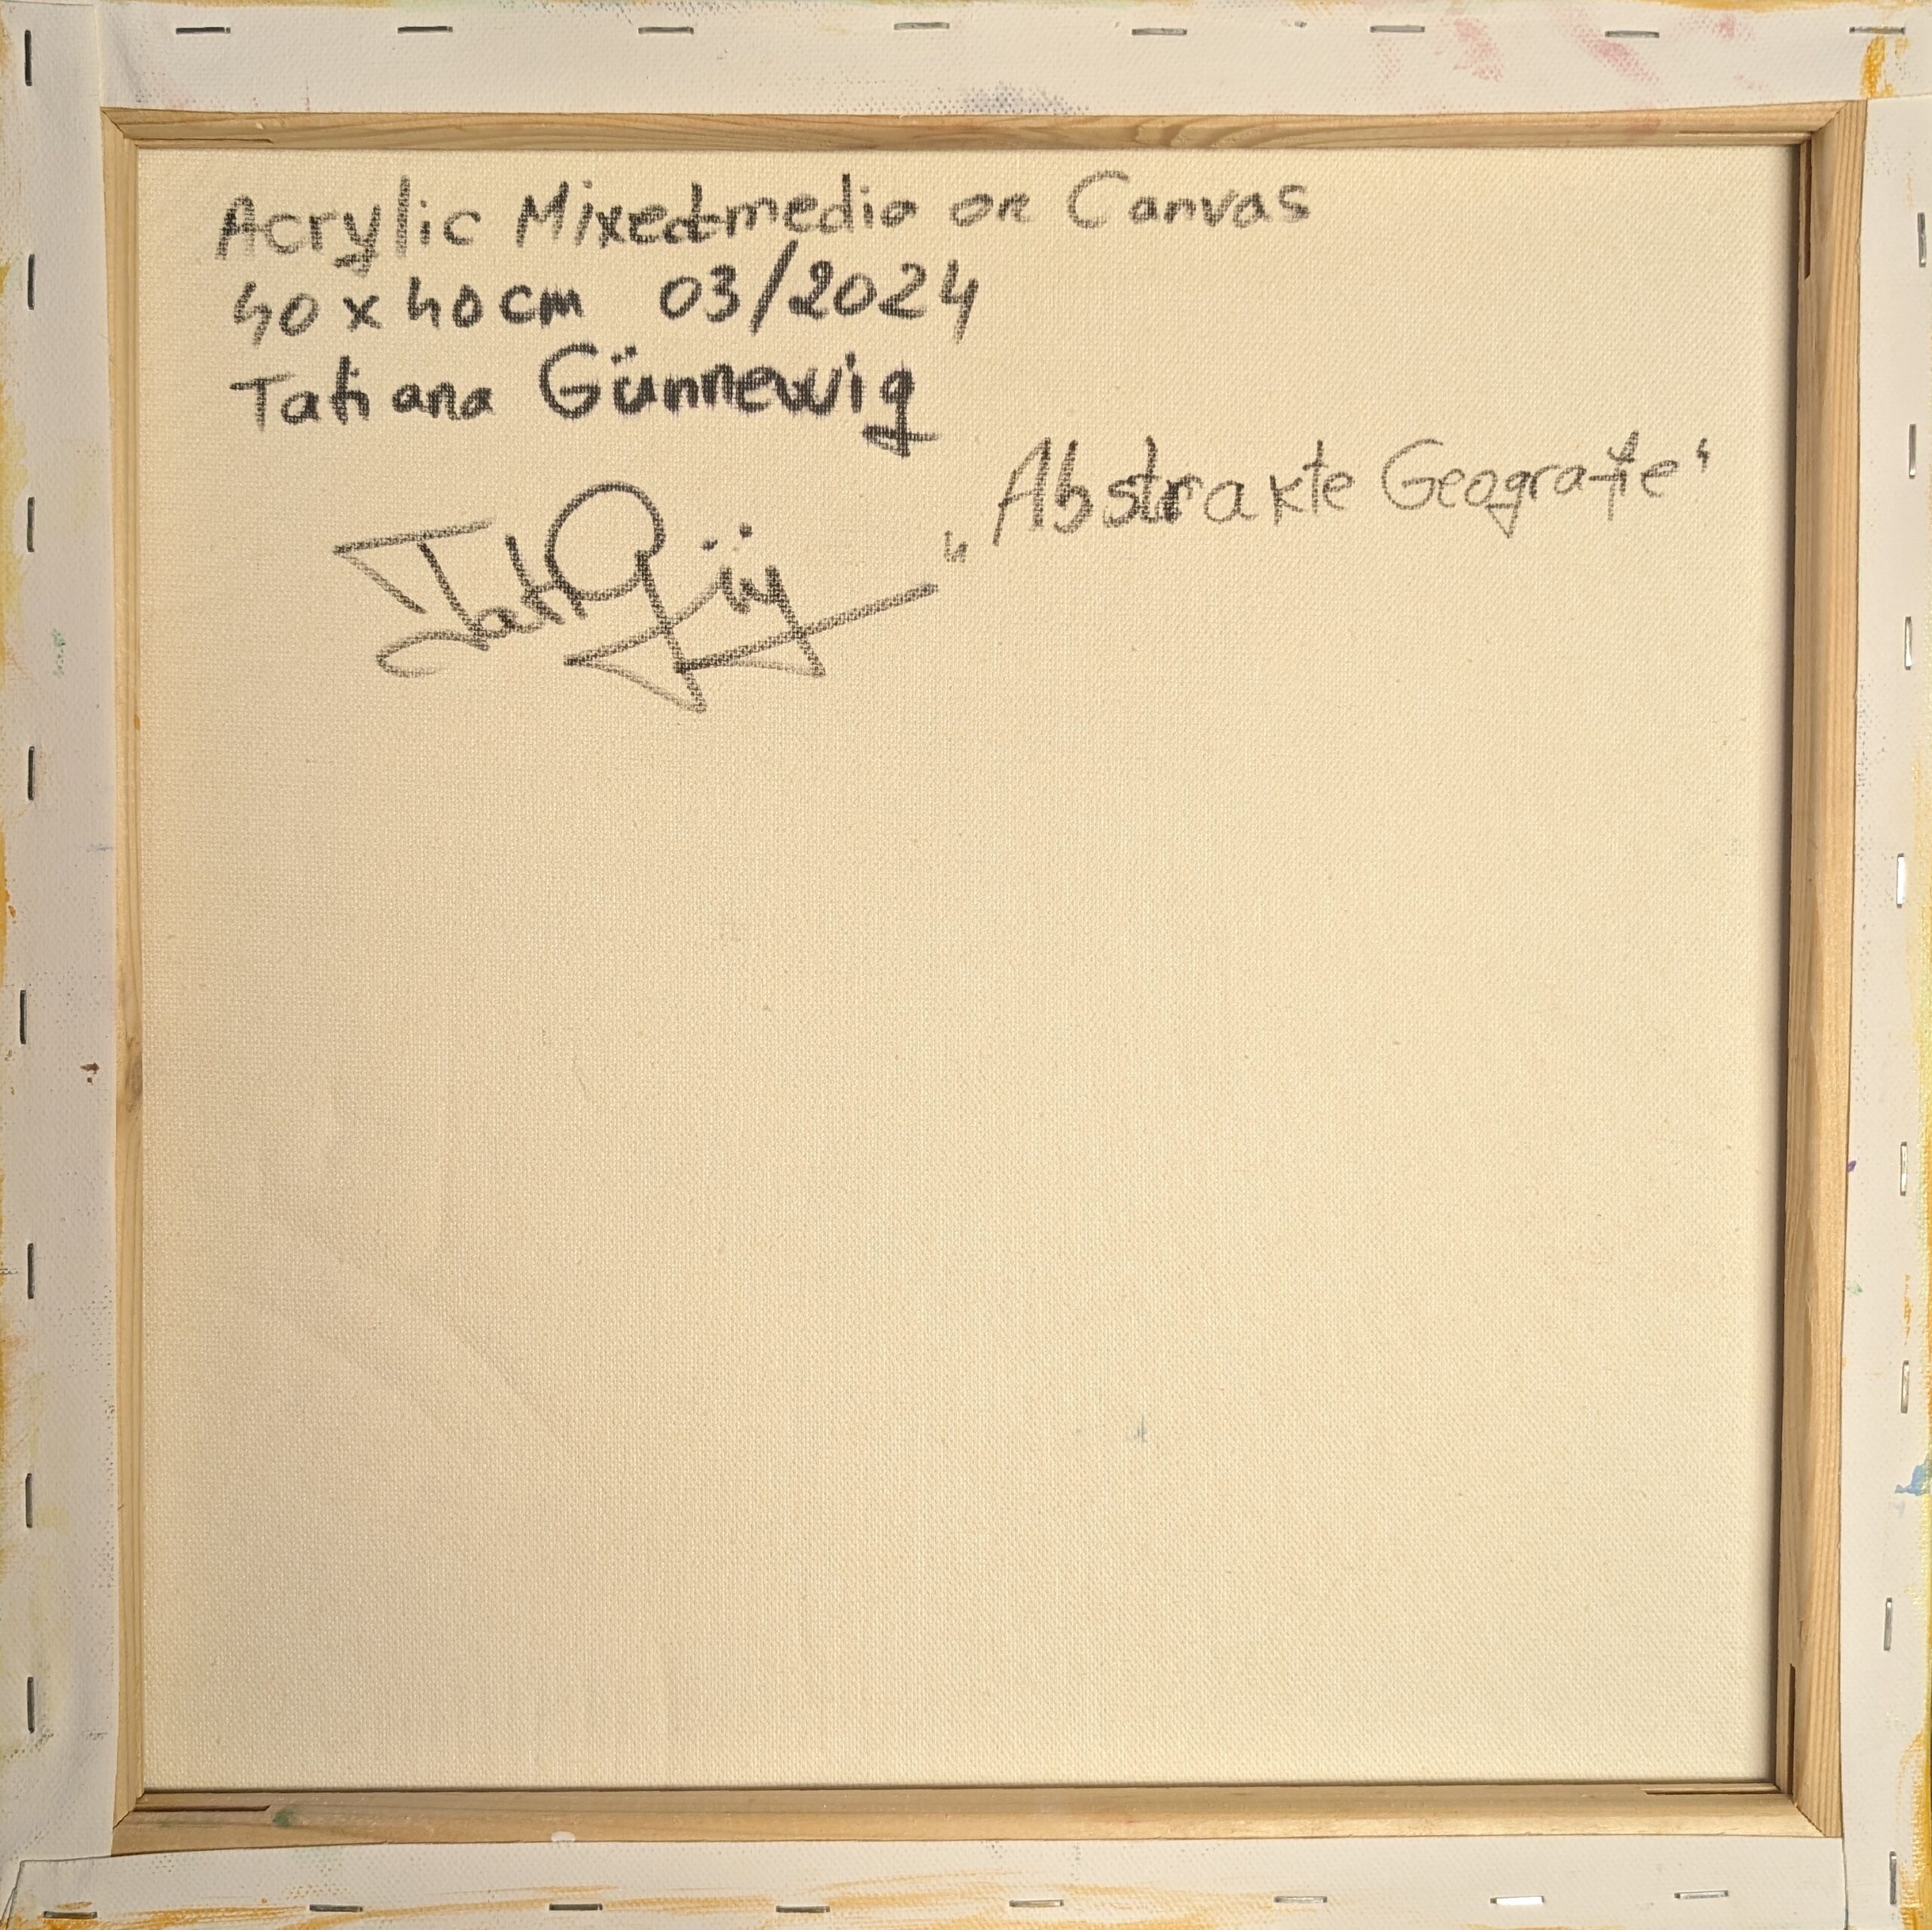 Acrylic Mixedmedia on Canvas
40 x 40 cm 03/2024
Tatiana Günnewig
„Abstrakte Geografie“